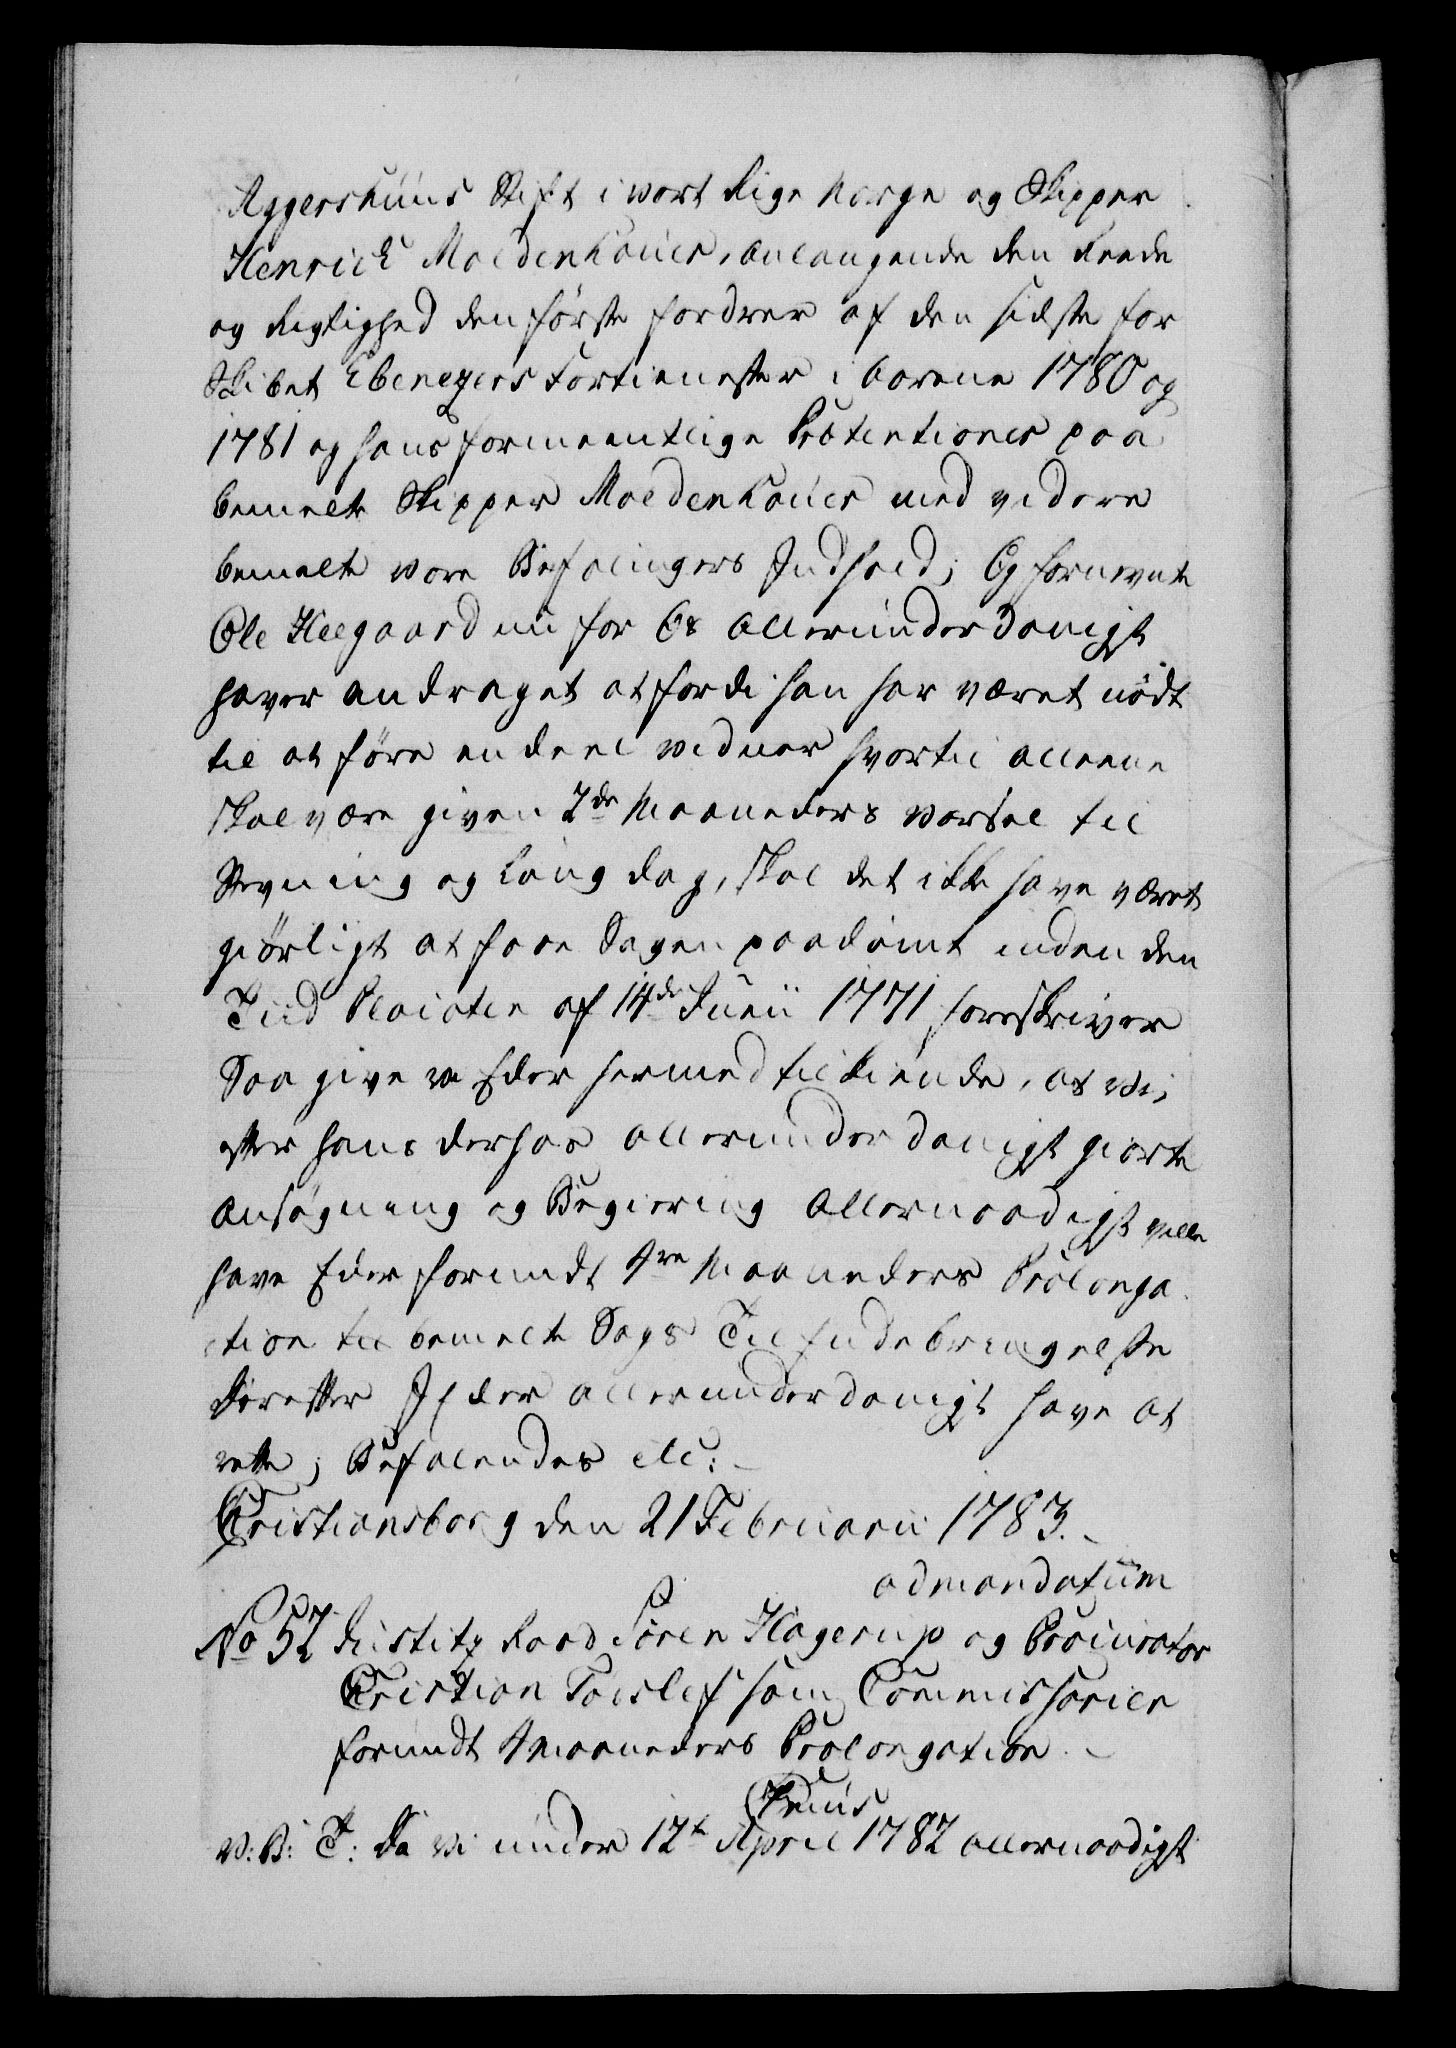 Aggershuus Stift i vort Rige Norge og Skipper
Henrich Moldenhauer, anlangende den Reede
og Rigtighed den første fordrer af den sidste for
Skibet Ebenezers Fortienester i Aarene 1780 og
1781 og hans formeentlige Prætentioner paa
bemelte Skipper Moldenhauer med videre
bemelte vore Befalingers Indhold; Og fornevnte
Ole Heegaard nu for Os allerunderdanigst
haver andraget at fordi han har været nødt
til at føre en deel Vidner hvortil alleene
skal være given 2de Maaneders Varsel til
Stevning og Laugdag, skal det ikke have været
giørligt at faae Sagen paadømt inden den
Tiid Placaten af 14de Junii 1771 foreskriver
Saa give vi Eder hermed tilkiende, at vi,
efter hans derhos allerunderdanigst giorte
Ansøgning og Begiering allernaadigst ville
have Eder forundt 4re Maaneders Prolonga
tion til bemelte Sags Til Endebringelse
Derefter I Eder allerunderdanigst have at
rette; Befalendes etc:
Christiansborg den 21 Februarii 1783.
ad mandatum
No 52 Justitz Raad Søren Hagerup og Procurator
Christian Toislef som Commissarier
forundt 4 Maaneders Prolongation.
Præmis
V: B: T: Da vi under 12te April 1782 allernaadigst